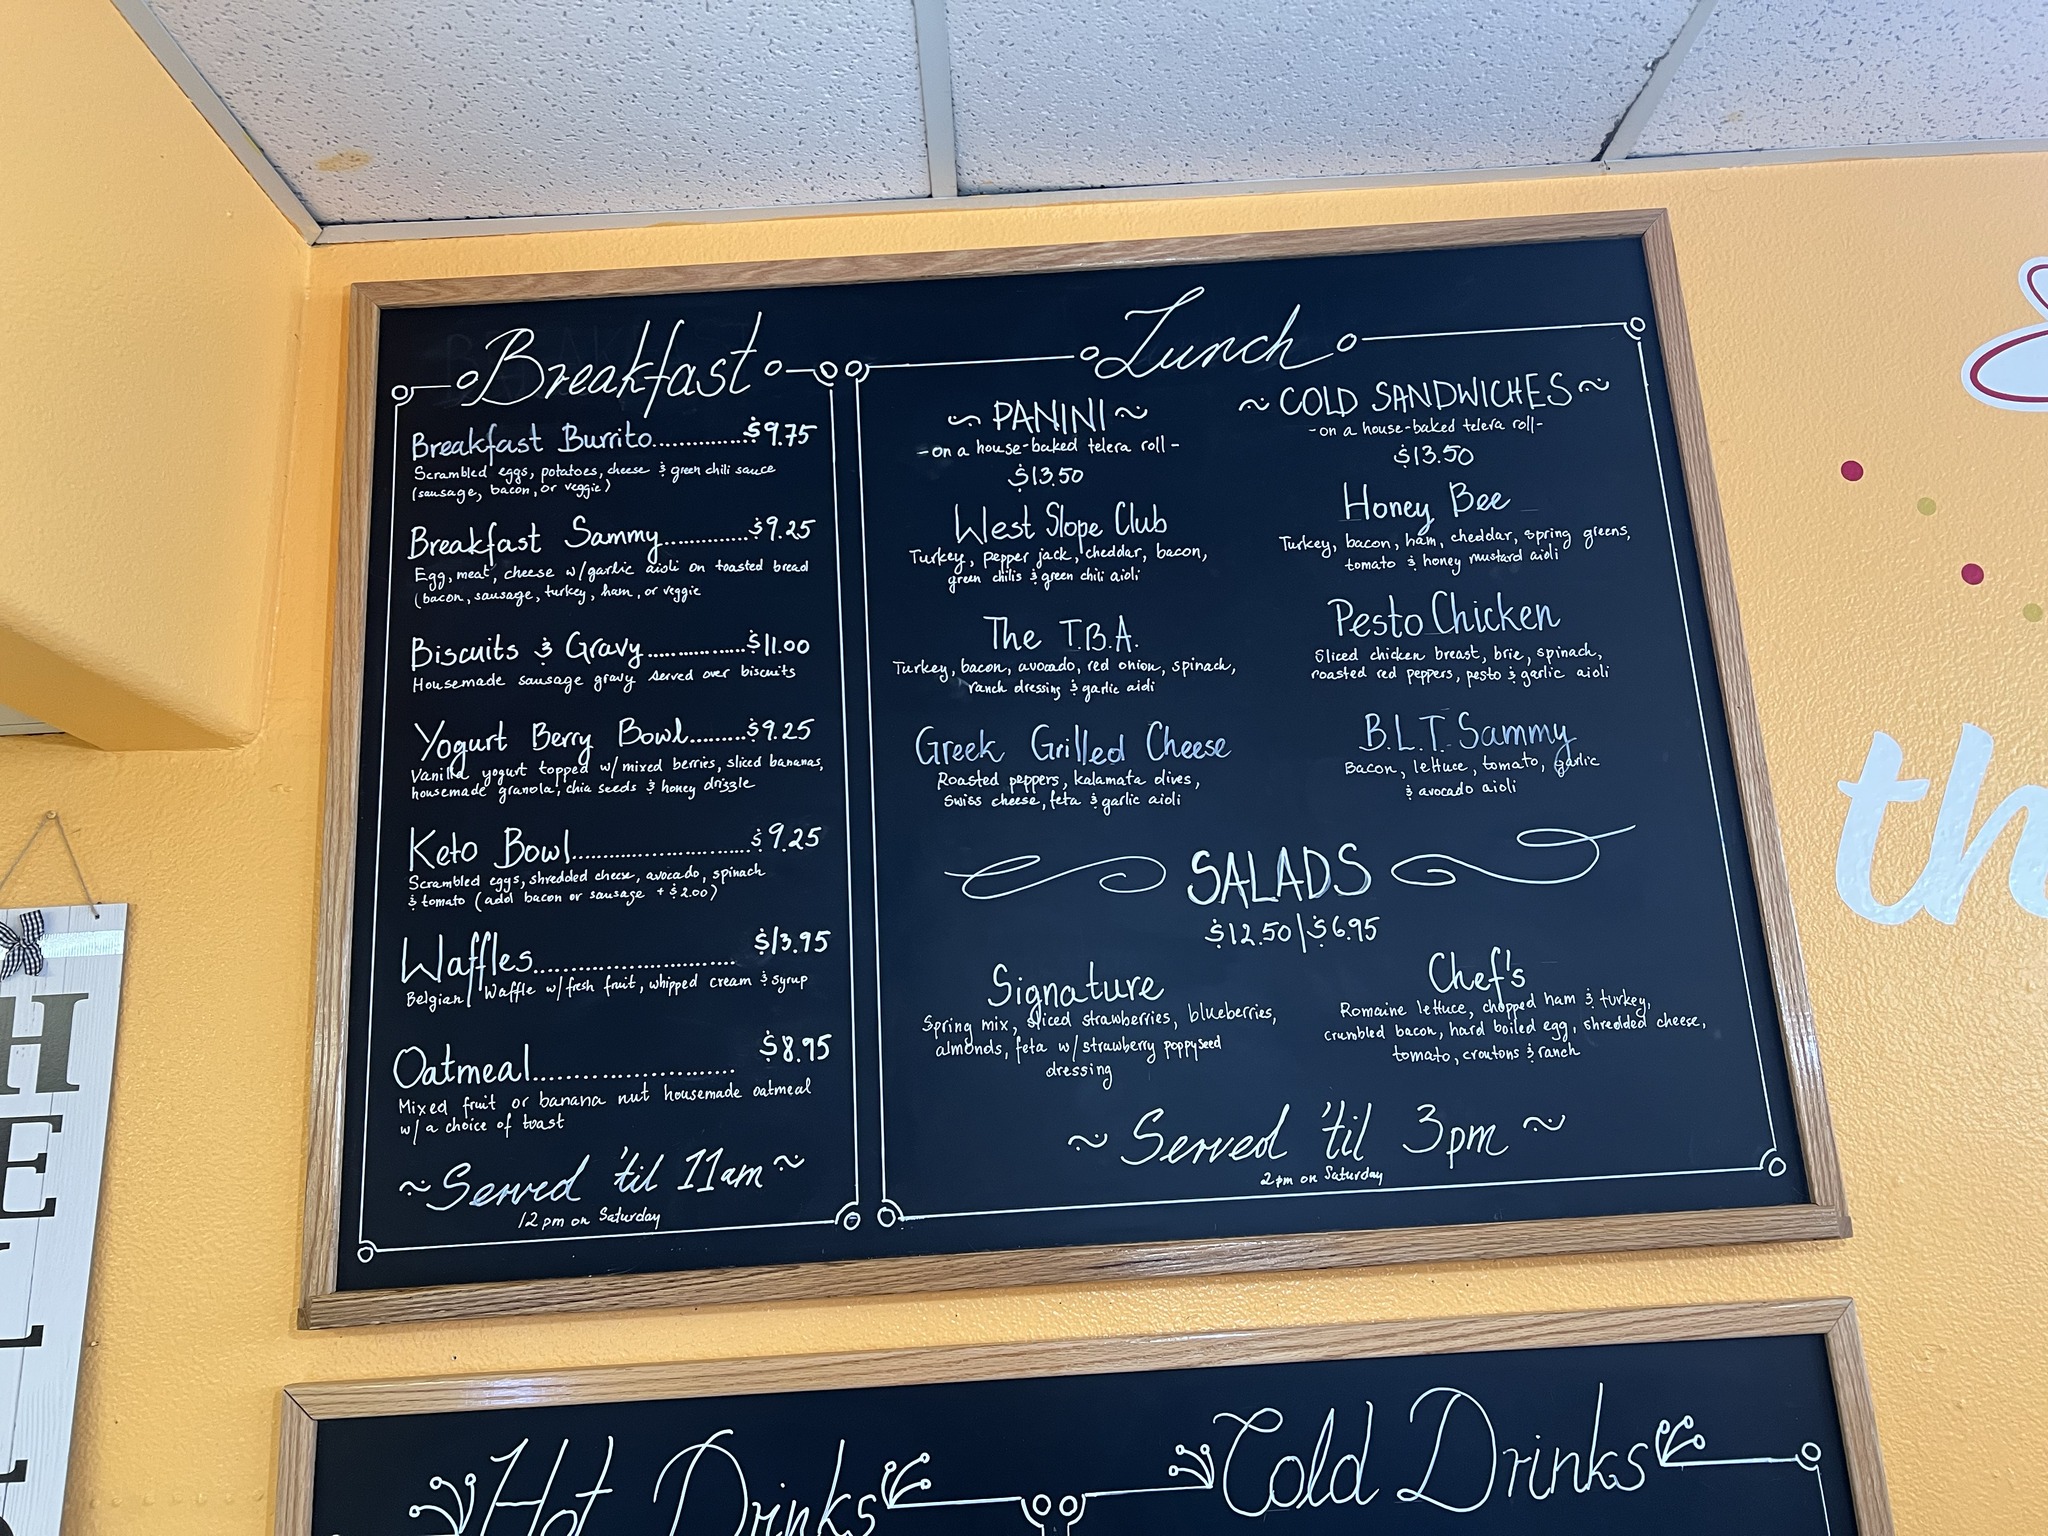 Breakfast
Breakfast Burrito...............$9.75
Scrambled eggs, potatoes, cheese & green chili sauce
(sausage, bacon, or veggie)
Breakfast Sammy..............$9.25
Egg, meat, cheese w/garlic aioli on toasted bread
(bacon, sausage, turkey, ham, or veggie
Biscuits & Gravy................$11.00
Housemade sausage gravy served over biscuits
Yogurt Berry Bowl.........$9.25
Vanilla yogurt topped w/ mixed berries, sliced bananas,
housemade granola, chia seeds & honey drizzle
Keto Bowl..............................$9.25
Scrambled eggs, shredded cheese, avocado, spinach
& tomato (add bacon or sausage + $2.00)
Waffles.............................$13.95
Belgian Waffle w/fresh fruit, whipped cream & syrup
Oatmeal............................$8.95
Mixed fruit or banana nut housemade oatmeal
w/ a choice of toast
~Served 'til 11am~
12pm on Saturday
Lunch
~ PANINI ~
-on a house-baked telera roll-
$13.50
West Slope Club
Turkey, pepper jack, cheddar, bacon,
green chilis & green chili aioli
The T.B.A.
Turkey, bacon, avocado, red onion, spinach,
ranch dressing & garlic aioli
Greek Grilled Cheese
Roasted peppers, kalamata olives,
Swiss cheese, feta & garlic aioli
~ COLD SANDWICHES ~
-on a house-baked telera roll-
$13.50
Honey Bee
Turkey, bacon, ham, cheddar, spring greens,
tomato & honey mustard aioli
Pesto Chicken
Sliced chicken breast, brie, spinach,
roasted red peppers, pesto & garlic aioli
B.L.T. Sammy
Bacon, lettuce, tomato, garlic
& avocado aioli
SALADS
$12.50|$6.95
Signature
Spring mix, sliced strawberries, blueberries,
almonds, feta w/strawberry poppyseed
dressing
Chef's
Romaine lettuce, chopped ham & turkey,
crumbled bacon, hard boiled egg, shredded cheese,
tomato, croutons & ranch
~ Served 'til 3pm ~
2pm on Saturday
Hot Drinks
Cold Drinks
th
H
E
L